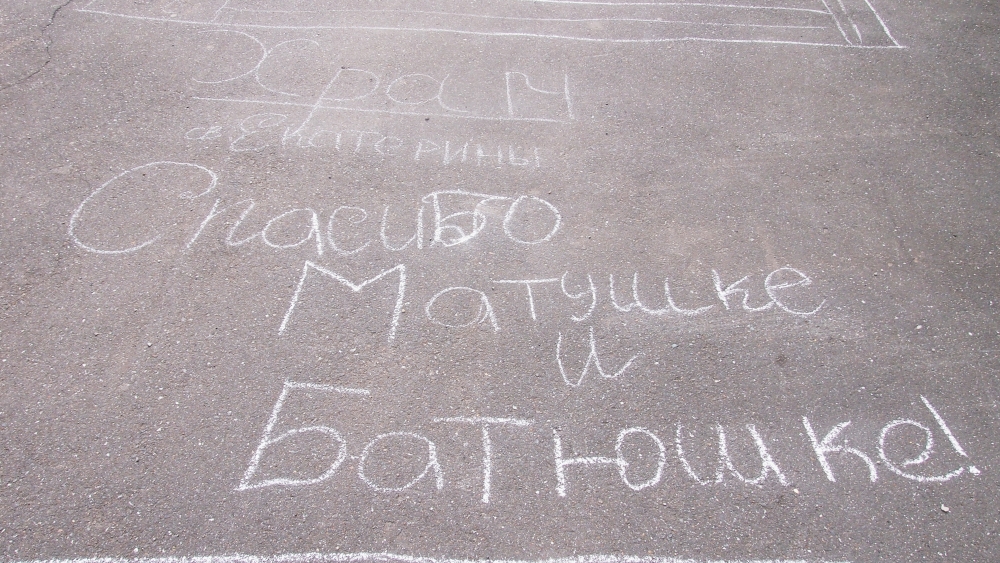 Храм
св Екатерины
Спасибо
Матушке
и
Батюшке!